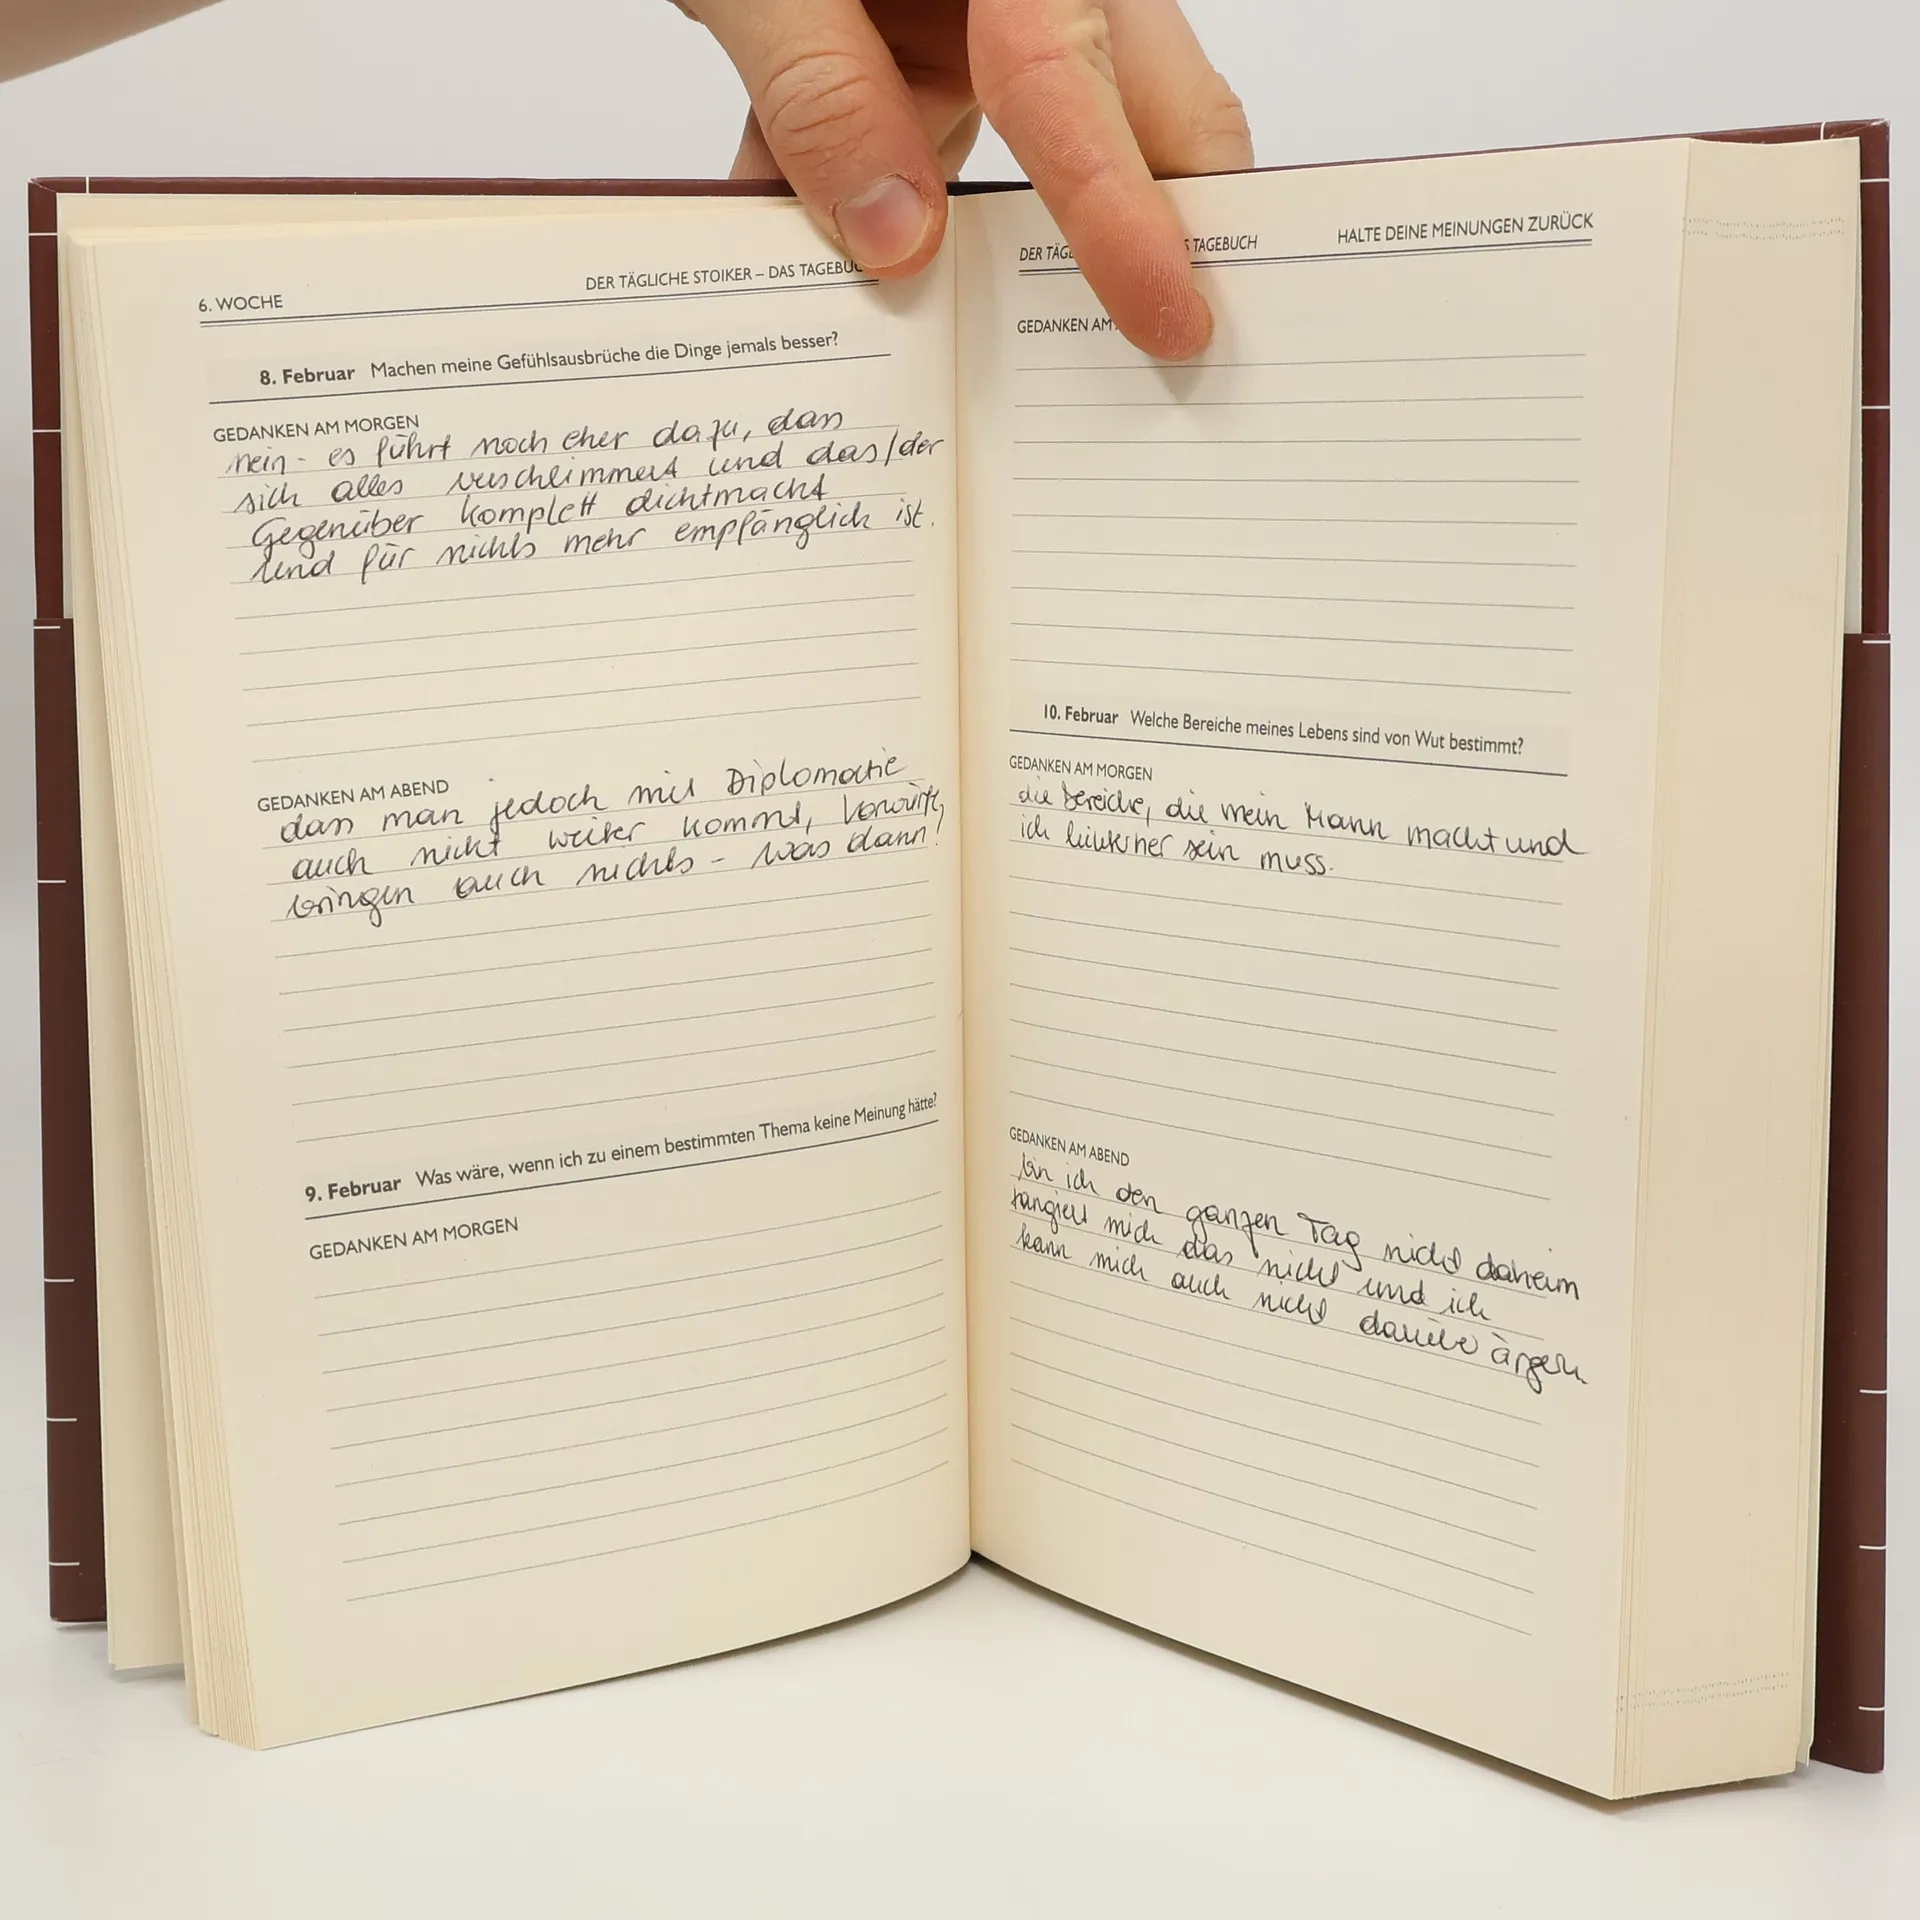 6. WOCHE
DER TÄGLICHE STOIKER – DAS TAGEBUC
8. Februar Machen meine Gefühlsausbrüche die Dinge jemals besser?
GEDANKEN AM MORGEN
nein - es führt noch eher dazu, dass
sich alles verschlimmert und das/der
Gegenüber komplett dichtmacht
und für nichts mehr empfänglich ist.
GEDANKEN AM ABEND
dass man jedoch mit Diplomatie
auch nicht weiter kommt, Vorwürfe
bringen auch nichts - was dann?
9. Februar Was wäre, wenn ich zu einem bestimmten Thema keine Meinung hätte?
GEDANKEN AM MORGEN
DER TÄG S TAGEBUCH
HALTE DEINE MEINUNGEN ZURÜCK
GEDANKEN AM
10. Februar Welche Bereiche meines Lebens sind von Wut bestimmt?
GEDANKEN AM MORGEN
die Bereiche, die mein Mann macht und
ich sein muss.
GEDANKEN AM ABEND
bin ich den ganzen Tag nicht daheim
tangiert mich das nicht und ich
kann mich auch nicht darüber ärgern.